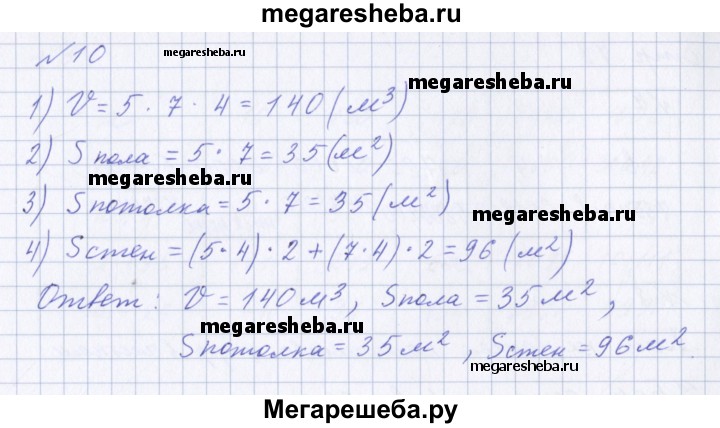 megaresheba.ru
№10 megaresheba.ru
1) V = 5 · 7 · 4 = 140 (м³) megaresheba.ru
2) Sпола = 5 · 7 = 35 (м²)
megaresheba.ru
3) Sпотолка = 5 · 7 = 35 (м²)
megaresheba.ru
4) Sстен = (5·4)·2 + (7·4)·2 = 96 (м²)
Ответ: V = 140 м³, Sпола = 35 м²,
megaresheba.ru
Sпотолка = 35 м², Sстен = 96 м²
megaresheba.ru
Мегарешеба.ру